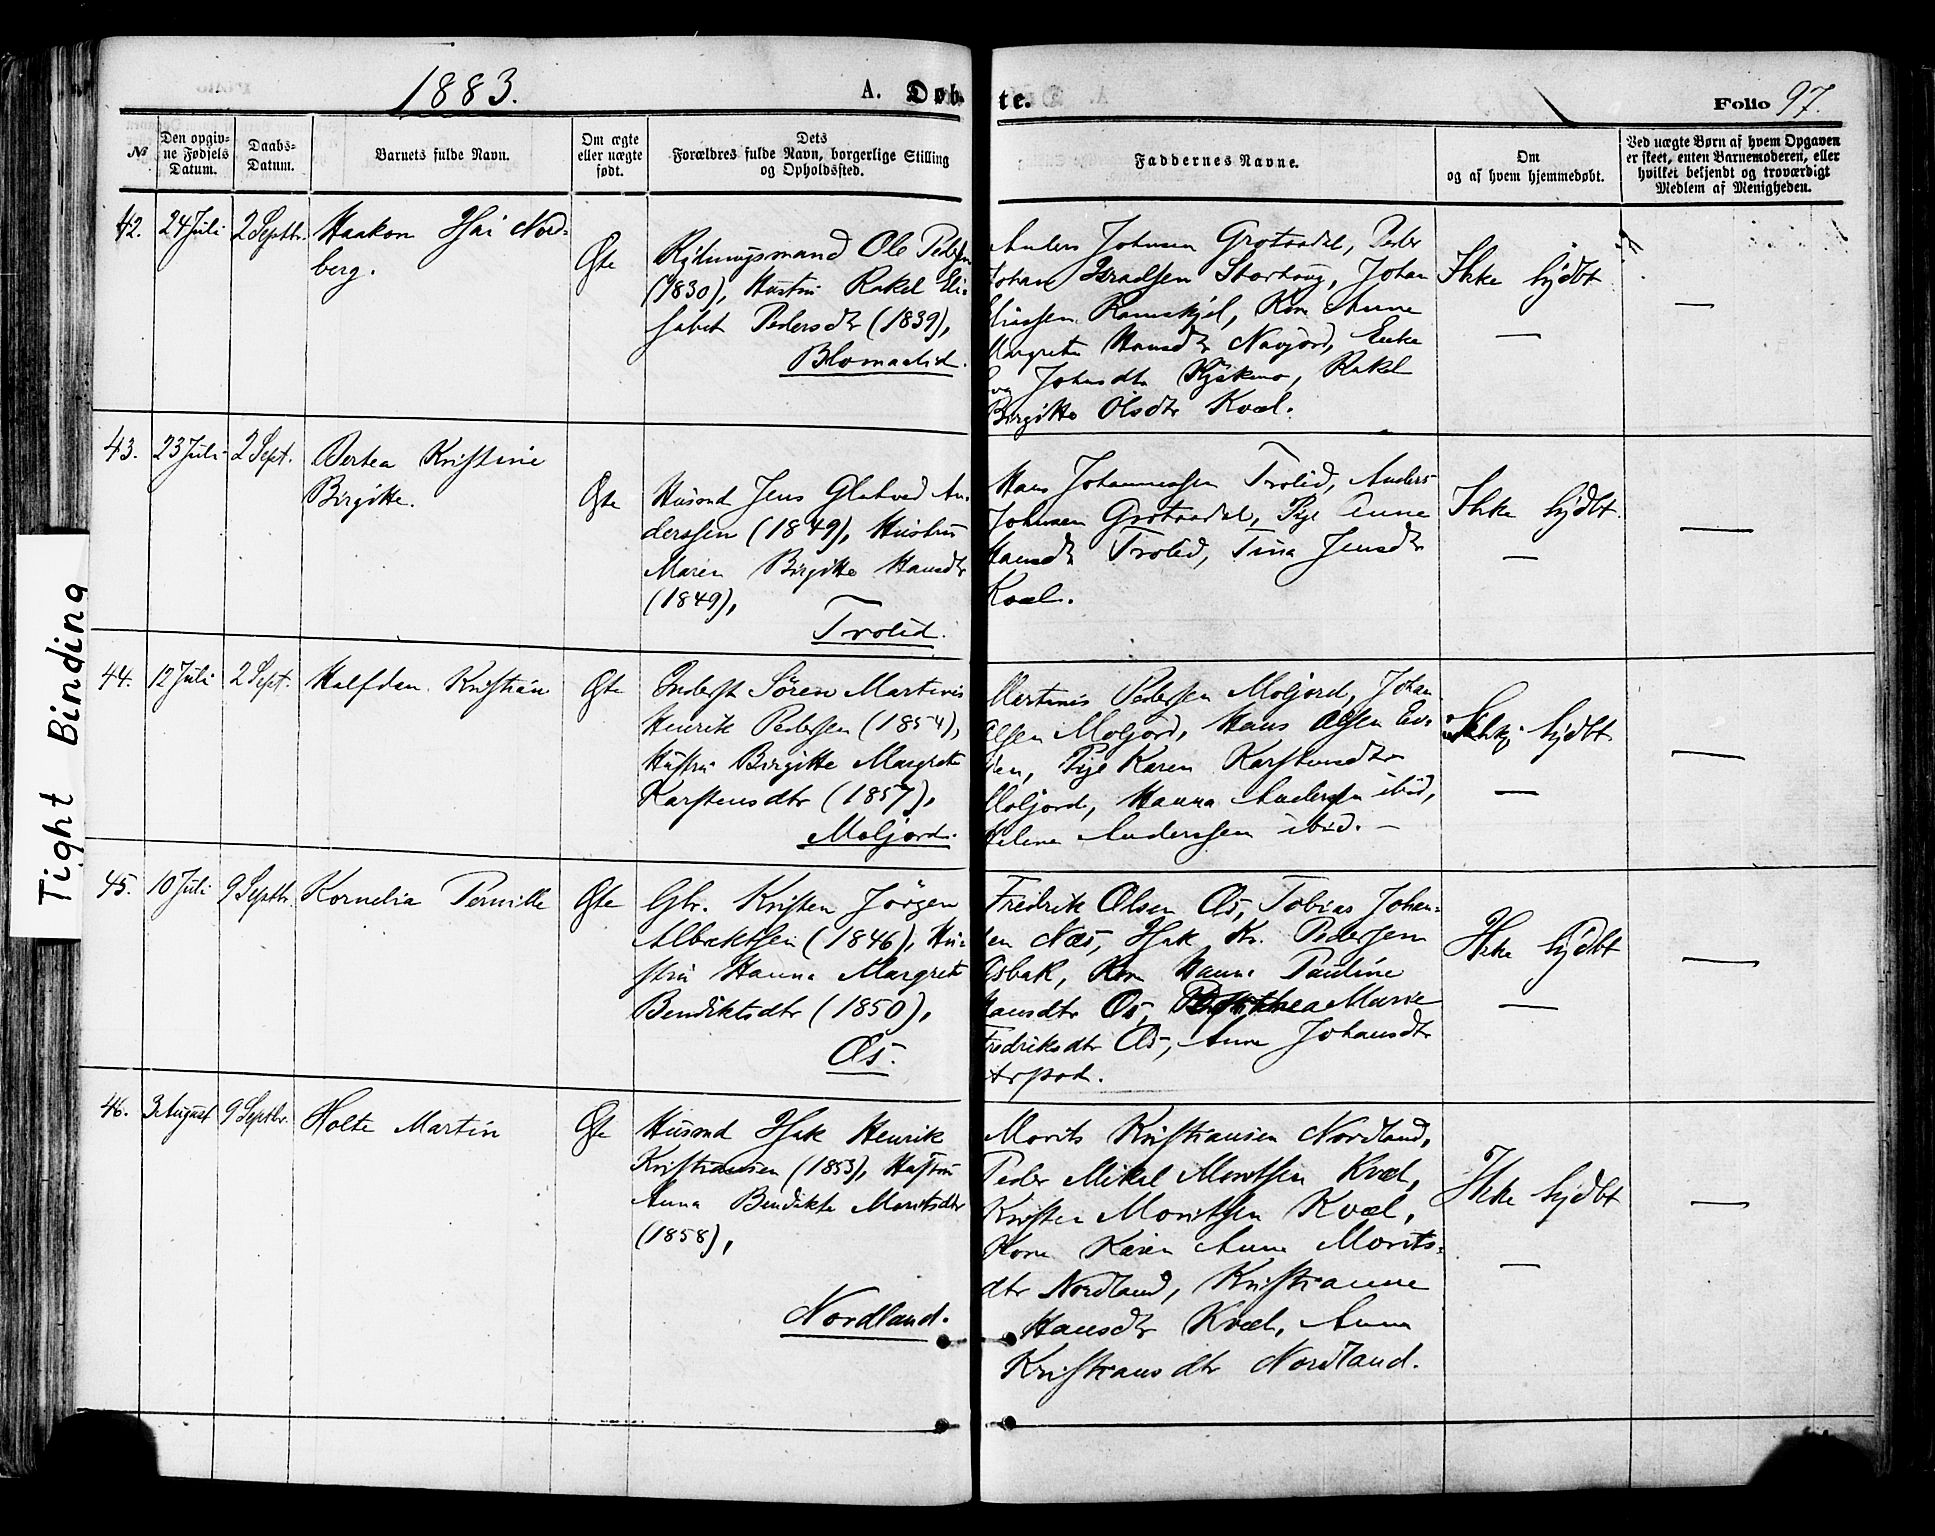 1883.
A. Døb-
te.
Folio 97.
№
Den opgiv-
ne Fødsels
Datum.
Daabs-
Datum.
Barnets fulde Navn.
Om ægte
eller uægte
født.
Dets
Forældres fulde Navn, borgerlige Stilling
og Opholdssted.
Faddernes Navne.
Om
og af hvem hjemmedøbt.
Ved uægte Børn af hvem Opgaven
er skeet, enten Barnemoderen, eller
hvilket bekjendt og troværdigt
Medlem af Menigheden.
42. 24 Juli 2 Septbr. Haakon Nord-
berg.
Ægte
Rydningsmand Ole Pedersen
(1830), Hustru Rakel Eli-
sabet Pedersdtr (1839),
Blomaalid.
Anders Johnsen Grotaadal, Peder
Johan Israelsen Storhaug, Johan
Eliassen Ramskjel, Kone Anne
Margrete Hansdtr Navjord, Enke
Johnsdtr Kjækmo, Rakel
Birgitte Olsdtr Kvæl.
Ikke hjdbt
—
—
43. 23 Juli 2 Sept. Bertea Kristine
Birgitte.
Ægte
Husmd Jens Glatved An-
derssen (1849), Hustru
Maren Birgitte Hansdtr
(1849),
Trolid.
Hans Johannessen Trolid, Anders
Johnsen Grotaadal, Pige Anne
Hansdtr Trolid, Tina Jensdtr
Kvæl.
Ikke hjdbt.
—
—
44. 12 Juli 2 Sept. Halfdan Kristian
Ægte
Inderst Sören Martinis
Henrik Pedersen (1854),
Hustru Birgitte Margrete
Karstensdtr (1857),
Moljord.
Martinis Pedersen Moljord, Johan
Olsen Moljord, Hans Olsen Evi-
Pige Karen Karstensdtr
Moljord, Hanna Anderssen ibid,
Helene Anderssen ibid. —
Ikke hjdbt
—
—
45. 10 Juli 9 Septbr. Kornelia Pernille
Ægte
Gbr. Kristen Jörgen
Albrektsen (1846), Hu-
stru Hanna Margrete
Bendiktsdtr (1850),
Øs.
Fredrik Olsen Øs, Tobias Johan-
sen Næs, Isak Kr. Pedersen
Osbak, Kone Hanna Pauline
Hansdtr Øs, Marie
Fredriksdtr Øs, Anne Johansdtr
Ikke hjdbt
—
—
46. 3 August 9 Septbr. Holte Martin
Ægte
Husmd Isak Henrik
Kristiansen (1853), Hustru
Anna Bendikte Moritsdtr
(1858),
Nordland.
Morits Kristiansen Nordland,
Peder Mikal Moritsen Kvæl,
Kristen Moritsen Kvæl,
Kone Karen Anne Morits-
dtr Nordland, Kristianne
Hansdtr Kvæl, Anna
Kristiansdtr Nordland.
Ikke hjdbt
—
—
Tight Binding